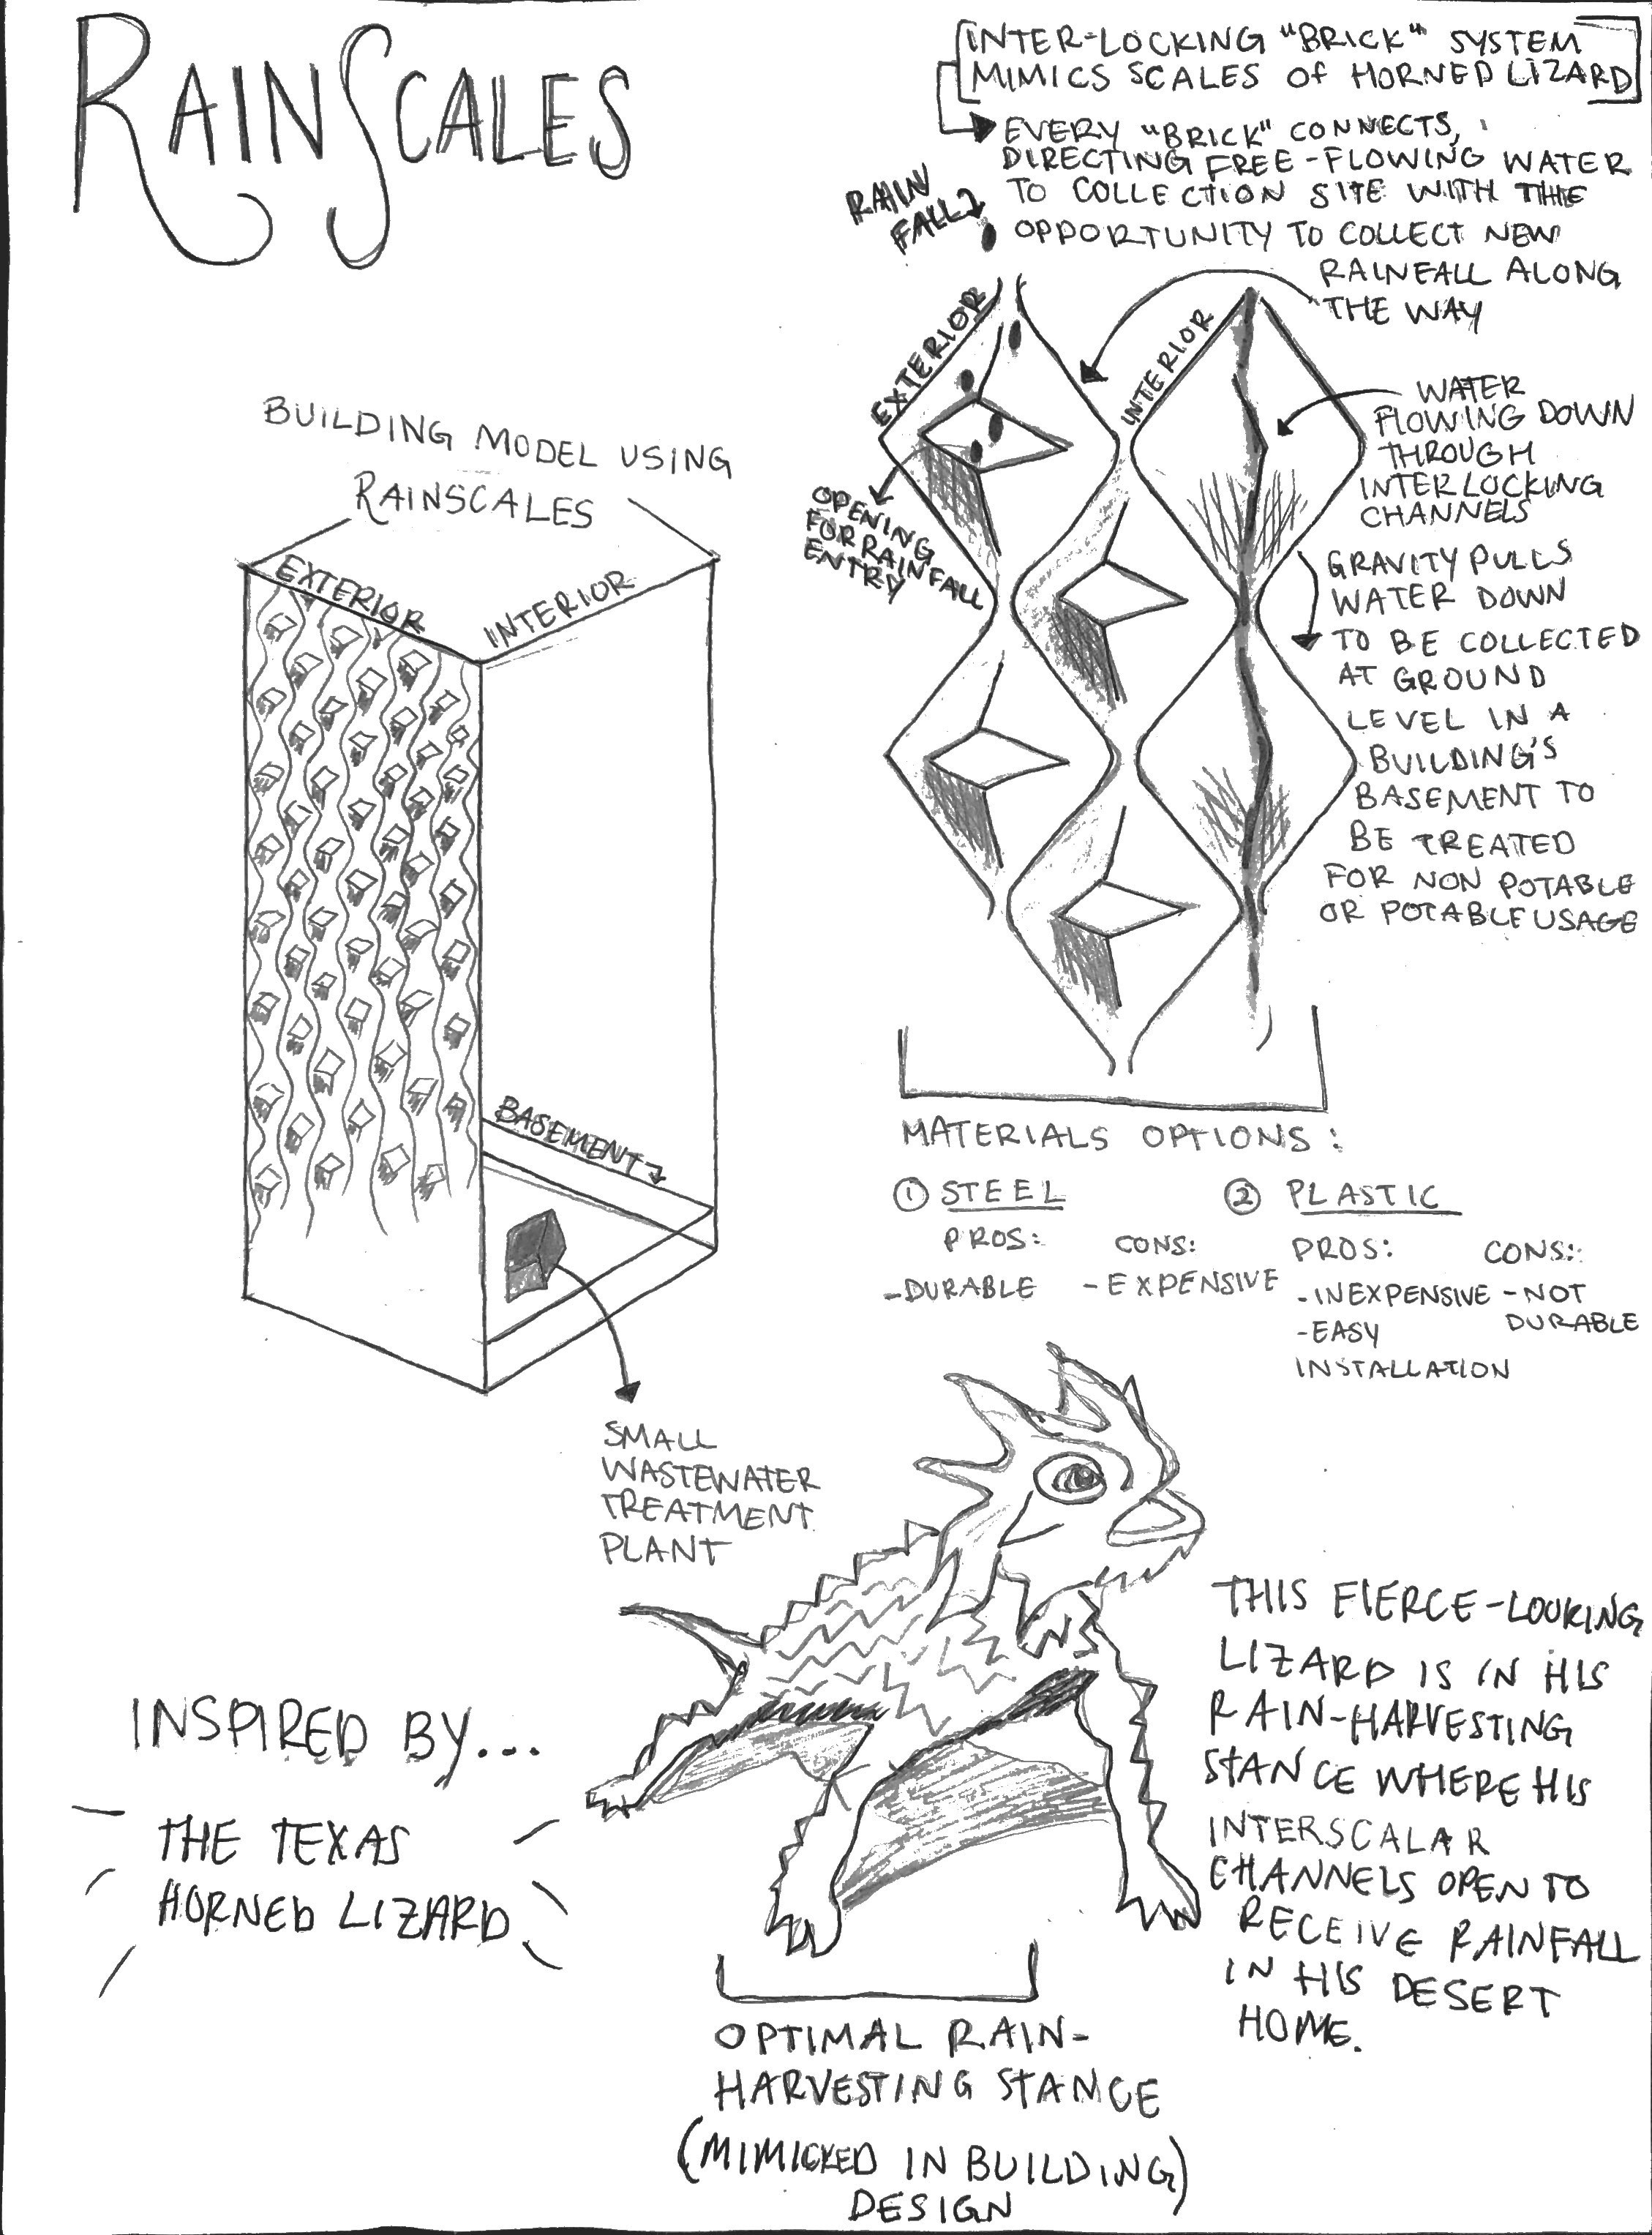 RAINSCALES
INTER-LOCKING "BRICK" SYSTEM
MIMICS SCALES OF HORNED LIZARD
EVERY "BRICK" CONNECTS,
DIRECTING FREE-FLOWING WATER
TO COLLECTION SITE WITH THE
OPPORTUNITY TO COLLECT NEW
RAINFALL ALONG
THE WAY
RAIN
FALL
EXTERIOR
INTERIOR
OPENING
FOR RAINFALL
ENTRY
WATER
FLOWING DOWN
THROUGH
INTERLOCKING
CHANNELS
GRAVITY PULLS
WATER DOWN
TO BE COLLECTED
AT GROUND
LEVEL IN A
BUILDING'S
BASEMENT TO
BE TREATED
FOR NON POTABLE
OR POTABLE USAGE
BUILDING MODEL USING
RAINSCALES
EXTERIOR
INTERIOR
BASEMENT
SMALL
WASTEWATER
TREATMENT
PLANT
MATERIALS OPTIONS:
① STEEL
PROS:
- DURABLE
CONS:
- EXPENSIVE
② PLASTIC
PROS:
- INEXPENSIVE
- EASY
INSTALLATION
CONS:
- NOT
DURABLE
INSPIRED BY...
THE TEXAS
HORNED LIZARD
THIS FIERCE-LOOKING
LIZARD IS IN HIS
RAIN-HARVESTING
STANCE WHERE HIS
INTERSCALAR
CHANNELS OPEN TO
RECEIVE RAINFALL
IN HIS DESERT
HOME.
OPTIMAL RAIN-
HARVESTING STANCE
(MIMICKED IN BUILDING)
DESIGN